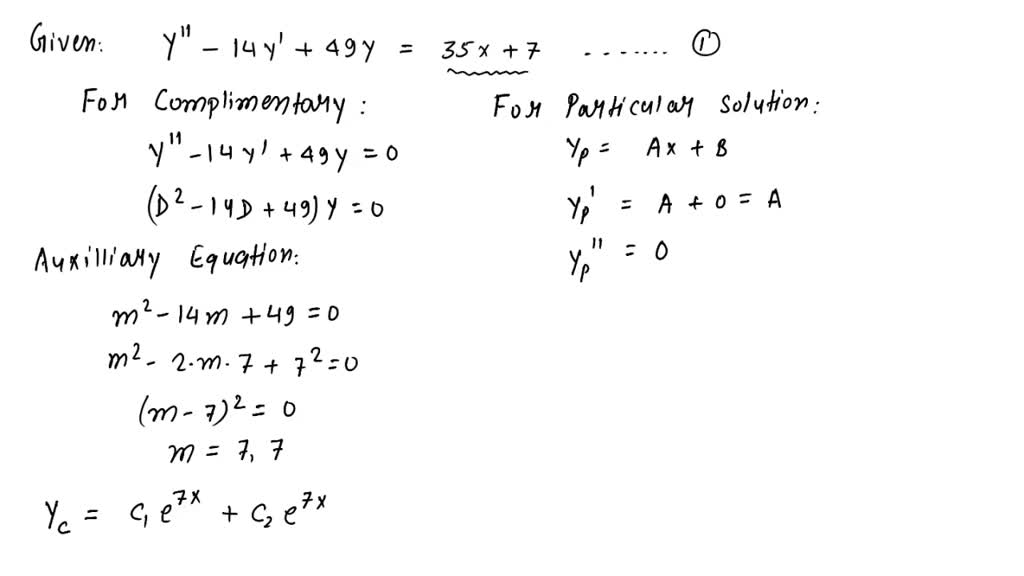 Given: y'' - 14y' + 49y = 35x + 7 ........ ①
For Complimentary:
y'' - 14y' + 49y = 0
(D² - 14D + 49) y = 0
Auxilliary Equation:
m² - 14m + 49 = 0
m² - 2·m·7 + 7² = 0
(m - 7)² = 0
m = 7, 7
Y_c = c₁e^{7x} + c₂e^{7x}
For Particular Solution:
y_p = Ax + B
y_p' = A + 0 = A
y_p'' = 0